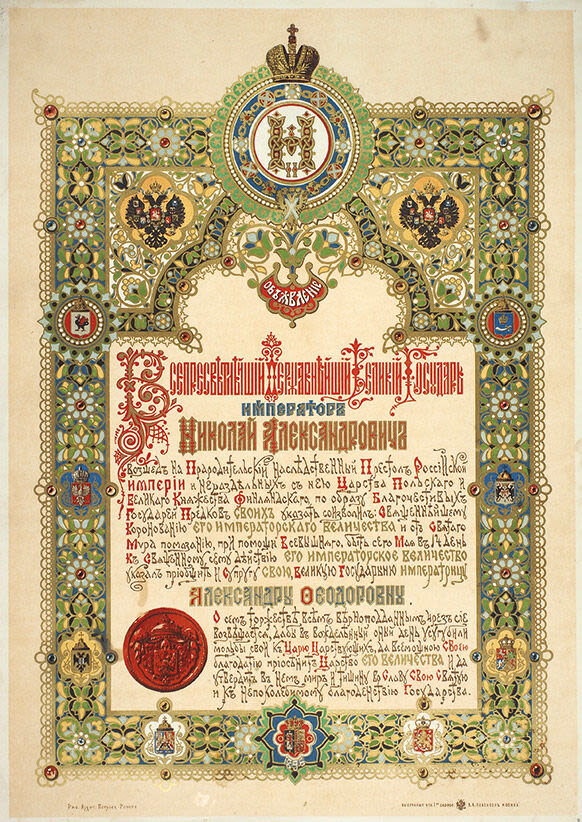 Н
II
ОБЪЯВЛЕНІЕ
Всепресвѣтлѣйшій Державнѣйшій Великій Государь
Императоръ
Николай Александровичъ
восшедъ на Прародительскій наслѣдственный Престолъ Россійской
империи и нераздѣльныхъ съ нею Царства Польскаго и
Великаго Княжества Финляндскаго, по образу Благочестивыхъ
Государей Предковъ Своихъ указать соизволилъ: Священнѣйшему
Коронованію Его Императорскаго Величества и отъ Святаго
Мѵра помазанію, при помощи Всевышняго, быть сего Мая въ 14 день
къ Священному сему дѣйствію Его Императорское Величество
указалъ пріобщить и Супругу Свою, Великую Государыню Императрицу
Александру Ѳеодоровну.
О семъ торжествѣ всѣмъ вѣрноподданнымъ чрезъ сіе
возвѣщается, дабы въ вожделѣнный оный день усугубили
мольбы свои къ Царю Царствующихъ, да всемощною Своею
благодатію пріосѣнитъ Царство Его Величества и да
утвердитъ въ немъ миръ и тишину во Славу Свою Святую
и къ непоколебимому благоденствію Государства.
Рис. Худож. Петровъ-Ропетъ
В. Москвѣ